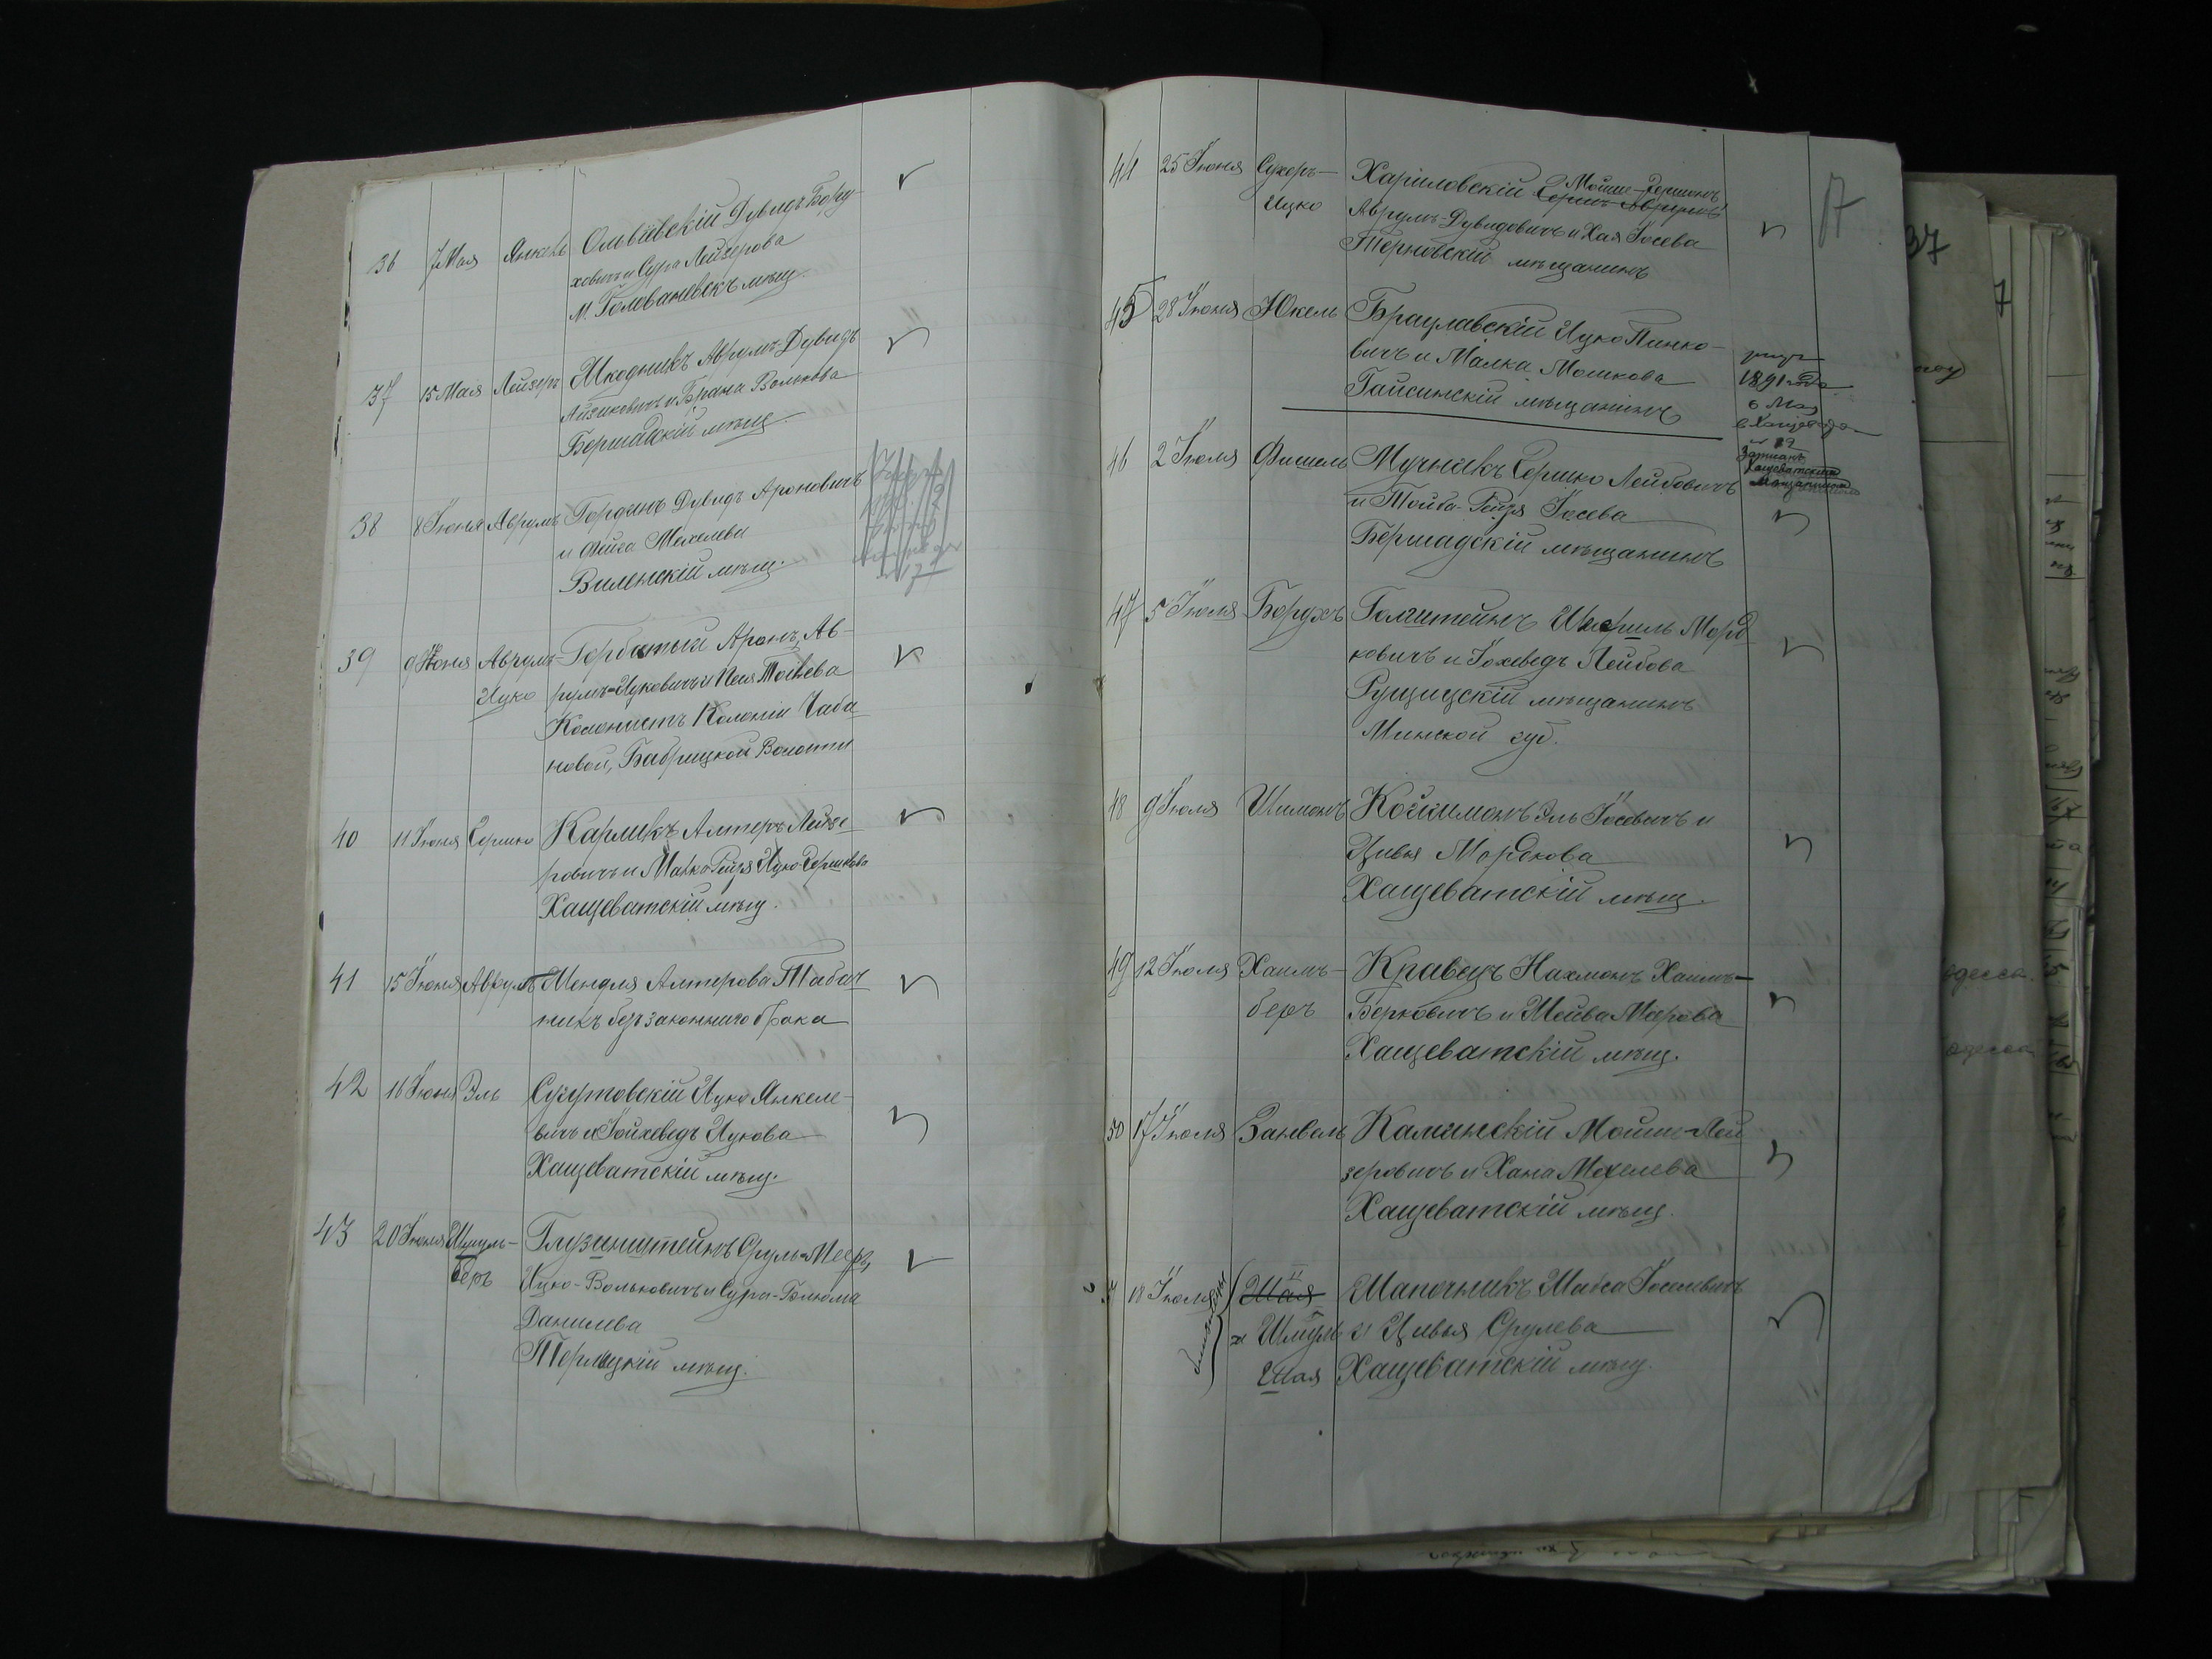 36 7 Мая Янкель Ольвіевскій Дувидъ Бору-
ховичъ и Сура Лейзерова
м. Голованевскъ мѣщ.
37 15 Мая Лейзеръ Шкодникъ Аврумъ-Дувидъ
Айзиковичъ и Брана Волькова
Бершадскій мѣщ.
38 8 Іюня Аврумъ Горденъ Дувидъ Ароновичъ
и Фейга Мехелева
Виленскій мѣщ.
39 9 Іюня Аврумъ- Горбатый Аронъ, Ав-
Ицко румъ-Ицковичъ и
Колонистъ Колоніи Чаба
новой, Бабрицкой Волости
40 11 Іюня Гершко Карликъ Алтеръ Лейзе
ровичъ и Малка Рейзя Ицко-Гершкова
Хащеватскій мѣщ.
41 15 Іюня Аврумъ Мендля Алтерова Табач
никъ безъ законнаго брака
42 16 Іюня Эль Сугутовскій Ицко Янкеле-
вичъ и Іойхеведъ Ицкова
Хащеватскій мѣщ.
43 20 Іюня Шмуль- Глузинштейнъ Сруль-Мееръ,
беръ Ицко-Вольковичъ и Сура-Блюма
Данилева
мѣщ.
17
44 25 Іюня Сухеръ- Харіловскій Мойше-Гершонъ
Ицко Аврумъ-Дувидовичъ и Хая Іосева
Терновскій мѣщанинъ
45 28 Іюня Юкель Брацлавскій Ицко Пинко-
вичъ и Малка Мошкова
Гайсинскій мѣщанинъ
1891 года
6 Мая
46 2 Іюля Фишель Мучникъ Гершко Лейбовичъ
и Тойба-Рейзя Іосева
Бершадскій мѣщанинъ
47 5 Іюля Борухъ Голштейнъ Морд
ковичъ и Іохеведъ Лейбова
мѣщанинъ
Минской губ.
48 9 Іюля Шимонъ Койлимонъ Эль Іосевичъ и
Цивья Мордкова
Хащеватскій мѣщ.
49 12 Іюля Хаимъ- Кравецъ Нахмонъ Хаимъ-
беръ Берковичъ и Шейва Меерова
Хащеватскій мѣщ.
50 17 Іюля Занвель Каминскій Мойше-Лей
зеровичъ и Хана Мехелева
Хащеватскій мѣщ.
18 Іюля Шая Шапочникъ Матса Іоселевичъ
Шмуль и Цивья Срулева
Шая Хащеватскій мѣщ.
37
7
одесса
одесса